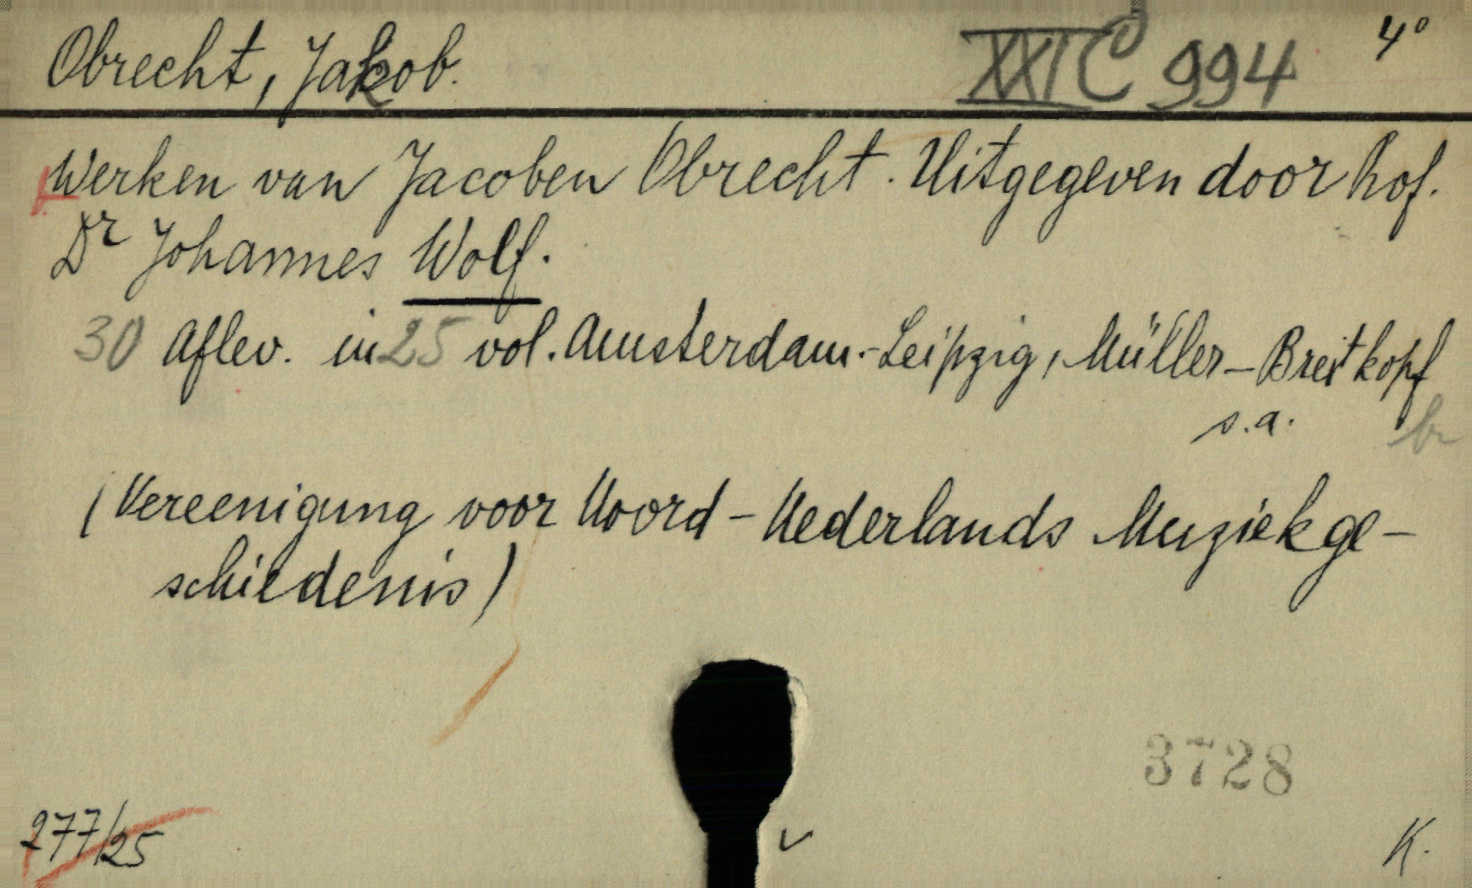 Obrecht, Jakob. XXI C 994 4°
Werken van Jacoben Obrecht. Uitgegeven door Prof.
Dr Johannes Wolf.
30 Aflev. in 25 vol. Amsterdam.-Leipzig, Müller-Breitkopf
s.a. br
(Vereenigung voor Noord-Nederlands Muziekge-
schiedenis)
3728
277/25 K.